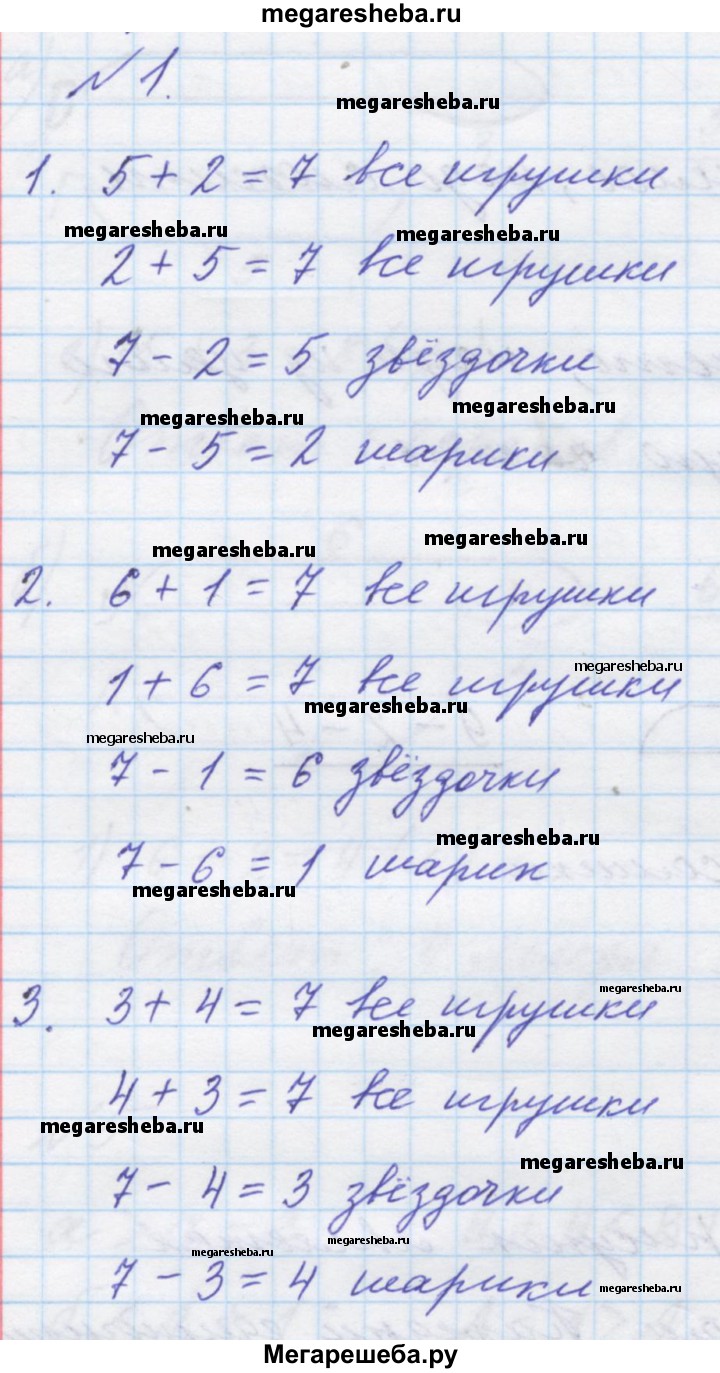 megaresheba.ru
№ 1.
megaresheba.ru
1. 5 + 2 = 7 все игрушки
megaresheba.ru
megaresheba.ru
2 + 5 = 7 все игрушки
7 - 2 = 5 звёздочки
megaresheba.ru
megaresheba.ru
7 - 5 = 2 шарики
megaresheba.ru
megaresheba.ru
2. 6 + 1 = 7 все игрушки
megaresheba.ru
1 + 6 = 7 все игрушки
megaresheba.ru
megaresheba.ru
7 - 1 = 6 звёздочки
megaresheba.ru
7 - 6 = 1 шарик
megaresheba.ru
megaresheba.ru
3. 3 + 4 = 7 все игрушки
megaresheba.ru
4 + 3 = 7 все игрушки
megaresheba.ru
megaresheba.ru
7 - 4 = 3 звёздочки
megaresheba.ru
megaresheba.ru
7 - 3 = 4 шарики
megaresheba.ru
Мегарешеба.ру